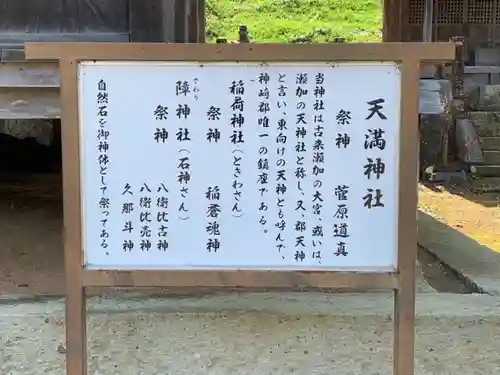 天満神社
祭神　菅原道真
当神社は古来瀬加の大宮、或いは、
瀬加の天神社と称し、又、郡天神
と言い、東向けの天神とも呼んで、
神崎郡唯一の鎮座である。
稲荷神社（ときわさん）
祭神　稲蒼魂神
障神社（石神さん）
さわり
祭神　八衛比古神
八衛比売神
久那斗神
自然石を御神体として祭ってある。